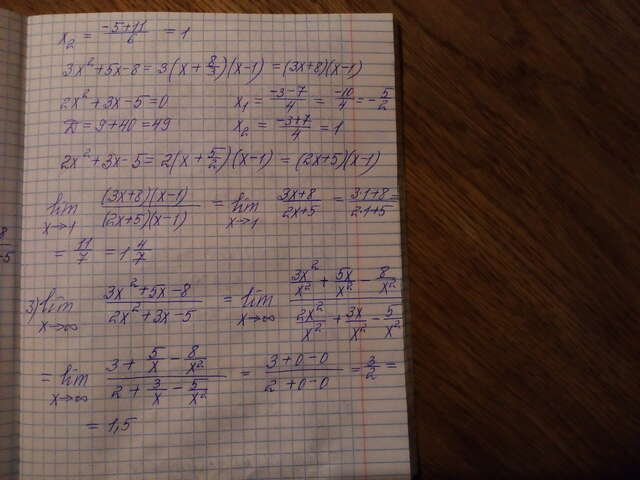 x₂ = (-5+11)/6 = 1
3x²+5x-8 = 3(x+8/3)(x-1) = (3x+8)(x-1)
2x²+3x-5=0 x₁ = (-3-7)/4 = -10/4 = -5/2
D=9+40=49 x₂ = (-3+7)/4 = 1
2x²+3x-5 = 2(x+5/2)(x-1) = (2x+5)(x-1)
lim x→1 (3x+8)(x-1)/(2x+5)(x-1) = lim x→1 (3x+8)/(2x+5) = (3·1+8)/(2·1+5) =
= 11/7 = 1 4/7
3) lim x→∞ (3x²+5x-8)/(2x²+3x-5) = lim x→∞ (3x²/x² + 5x/x² - 8/x²)/(2x²/x² + 3x/x² - 5/x²)
= lim x→∞ (3 + 5/x - 8/x²)/(2 + 3/x - 5/x²) = (3+0-0)/(2+0-0) = 3/2 =
= 1,5